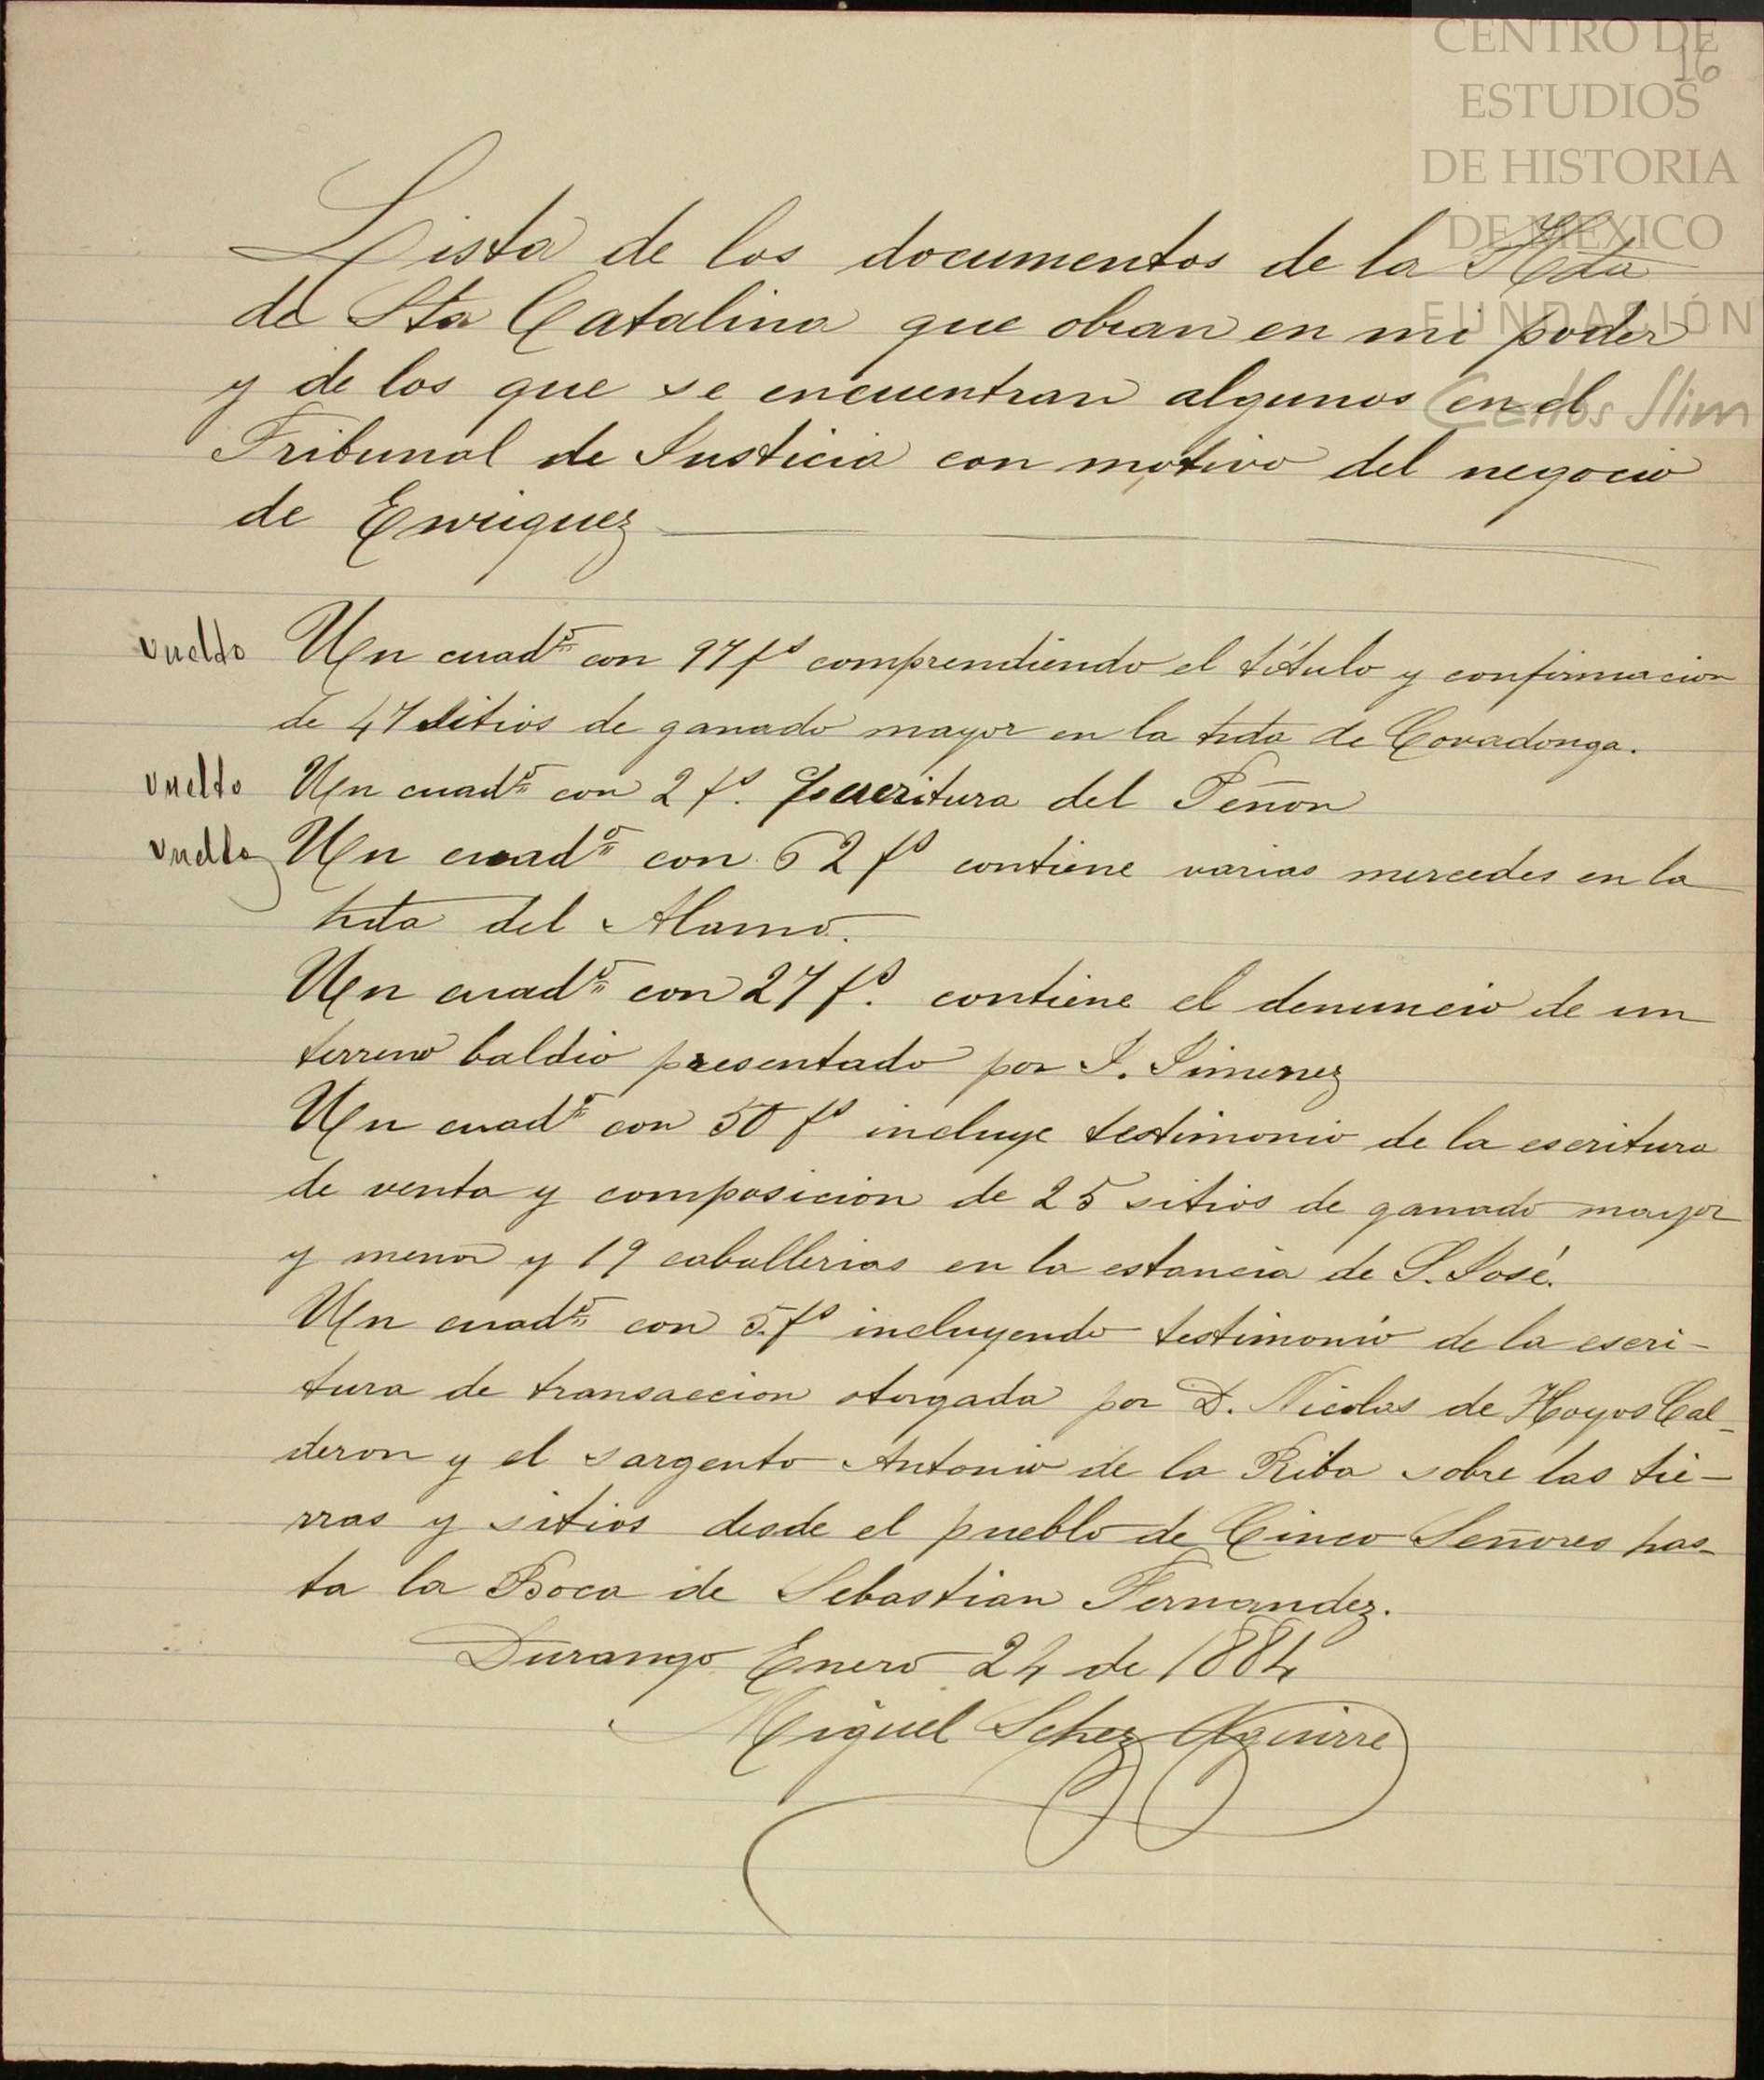 CENTRO DE
16
ESTUDIOS
DE HISTORIA
DE MEXICO
FUNDACIÓN
Carlos Slim
Lista de los documentos de la Hda
de Sta Catalina que obran en mi poder
y de los que se encuentran algunos en el
Tribunal de Justicia con motivo del negocio
de Enriquez
vuelto Un cuadº con 97 fs comprendiendo el título y confirmacion
de 47 sitios de ganado mayor en la hda de Covadonga.
vuelto Un cuadº con 2 fs. Escritura del Peñon
vuelto Un cuadº con 62 fs contiene varias mercedes en la
hda del Alamo.
Un cuadº con 27 fs. contiene el denuncio de un
terreno baldio presentado por J. Jimenez
Un cuadº con 50 fs incluye testimonio de la escritura
de venta y composicion de 25 sitios de ganado mayor
y menor y 19 caballerias en la estancia de S. José.
Un cuadº con 5. fs incluyendo testimonio de la escri-
tura de transaccion otorgada por D. Nicolas de Hoyos Cal-
deron y el sargento Antonio de la Riba sobre las tie-
rras y sitios desde el pueblo de Cinco Señores has-
ta la Boca de Sebastian Fernandez.
Durango Enero 24 de 1884
Miguel Schez Aguirre